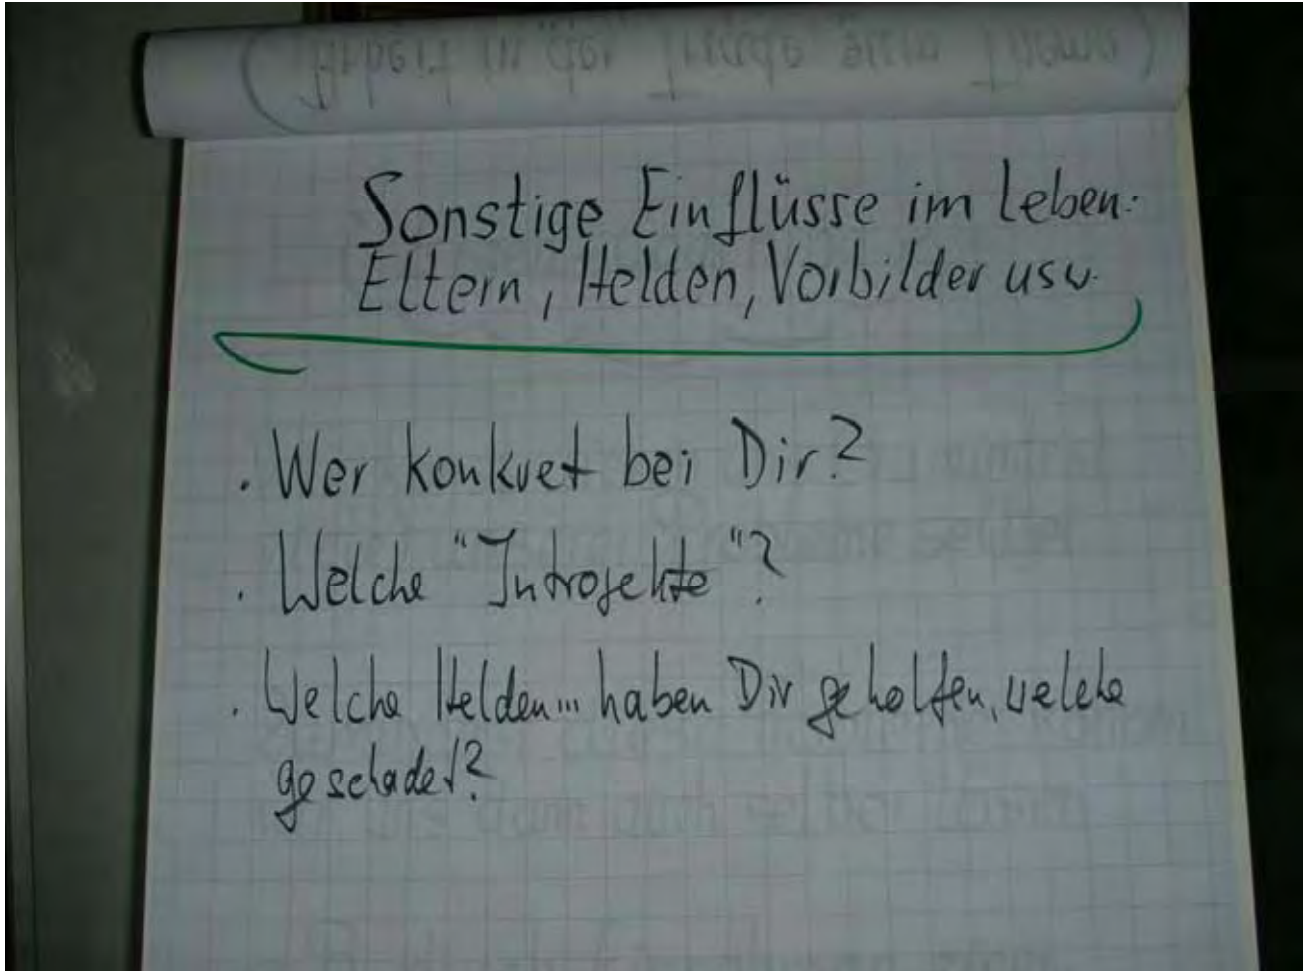 (Arbeit in der Triade zum Thema)
Sonstige Einflüsse im Leben:
Eltern, Helden, Vorbilder usw.
. Wer konkret bei Dir?
. Welche "Introjekte"?
. Welche Helden... haben Dir geholfen, welche
geschadet?